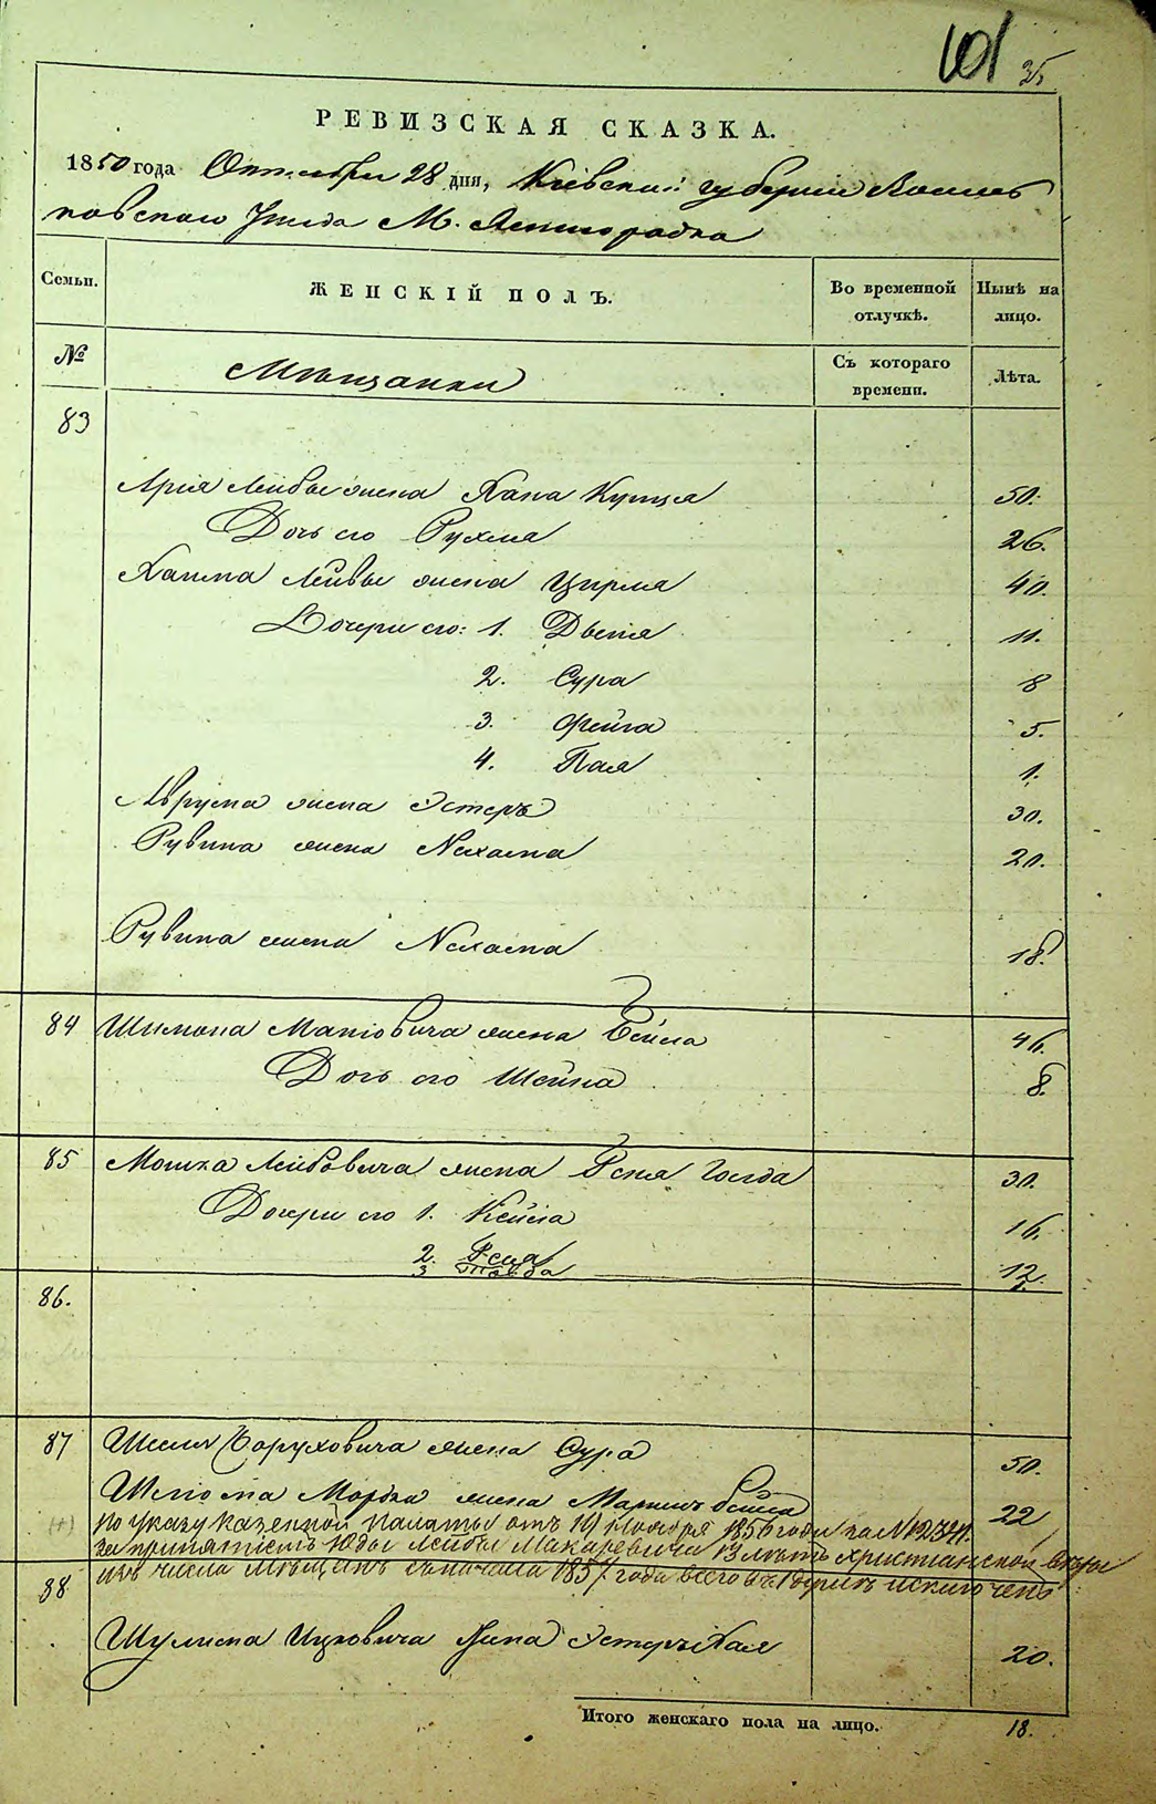 101 35
РЕВИЗСКАЯ СКАЗКА.
1850 года Октября 28 дня, Кіевской губерніи Василь
ковскаго Уѣзда М. Ясногродка
Семьи. ЖЕНСКІЙ ПОЛЪ. Во временной отлучкѣ. Нынѣ на лицо.
№ Мѣщанки Съ котораго времени. Лѣта.
83
Арія Лейбы жена Хана Купца 50.
Дочь его Рухля 26.
Хаима Лейвы жена Цирля 40.
Дочери его: 1. Двеня 11.
2. Сура 8
3. Фейга 5.
4. Пая 1.
Аврума жена Эстеръ 30.
Рувина жена Нехама 20.
Рувина жена Нехама 18.
84 Шимона Матовича жена Бейла 46.
Дочь его Шейна 8.
85 Мошка Лейбовича жена Реня Голда 30.
Дочери его 1. Кейла 16.
2. Реня 12.
3 1.
86.
87 Боруховича жена Сура 50.
Шлiома Мордка жена Маримъ Бейла 22
по указу Казенной Палаты отъ 19 Ноября 1856 года за №
за принятіемъ Юды Лейбы Макаревича 13 лѣтъ христіанской вѣры
88 изъ числа Мѣщанъ съ начала 1857 года всего въ 1 исключенъ
Шулима Ицковича жена Эстеръ Хая 20.
Итого женскаго пола на лицо. 18.